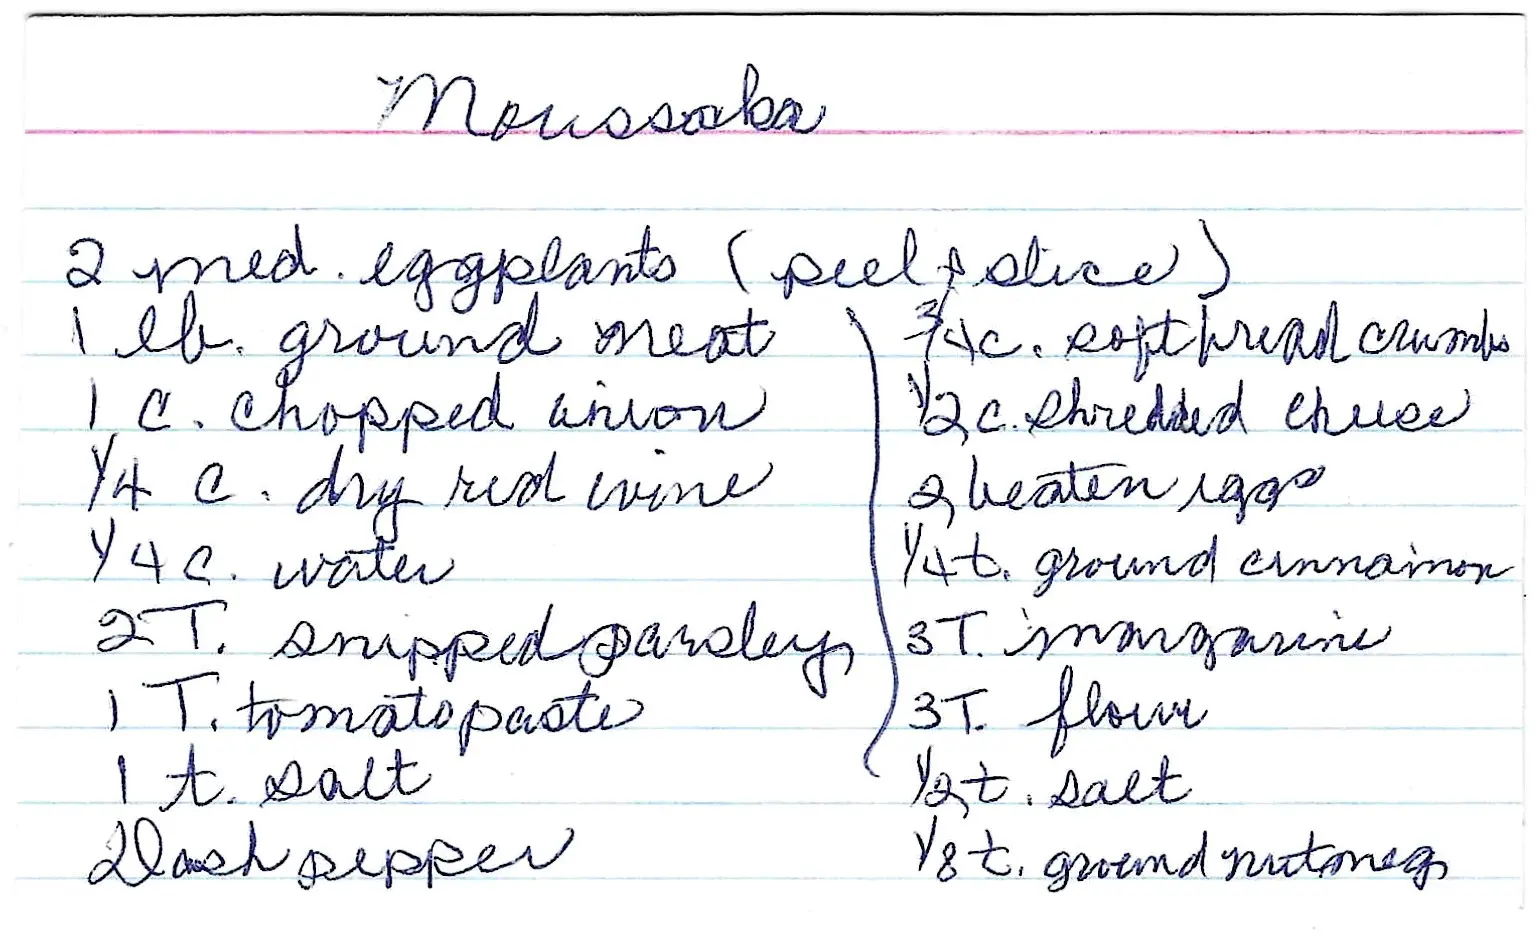 Moussaka
2 med. eggplants (peel & slice)
1 lb. ground meat
1 c. chopped onion
1/4 c. dry red wine
1/4 c. water
2 T. snipped parsley
1 T. tomato paste
1 t. salt
Dash pepper
3/4 c. soft bread crumbs
1/2 c. shredded cheese
2 beaten eggs
1/4 t. ground cinnamon
3 T. margarine
3 T. flour
1/2 t. salt
1/8 t. ground nutmeg